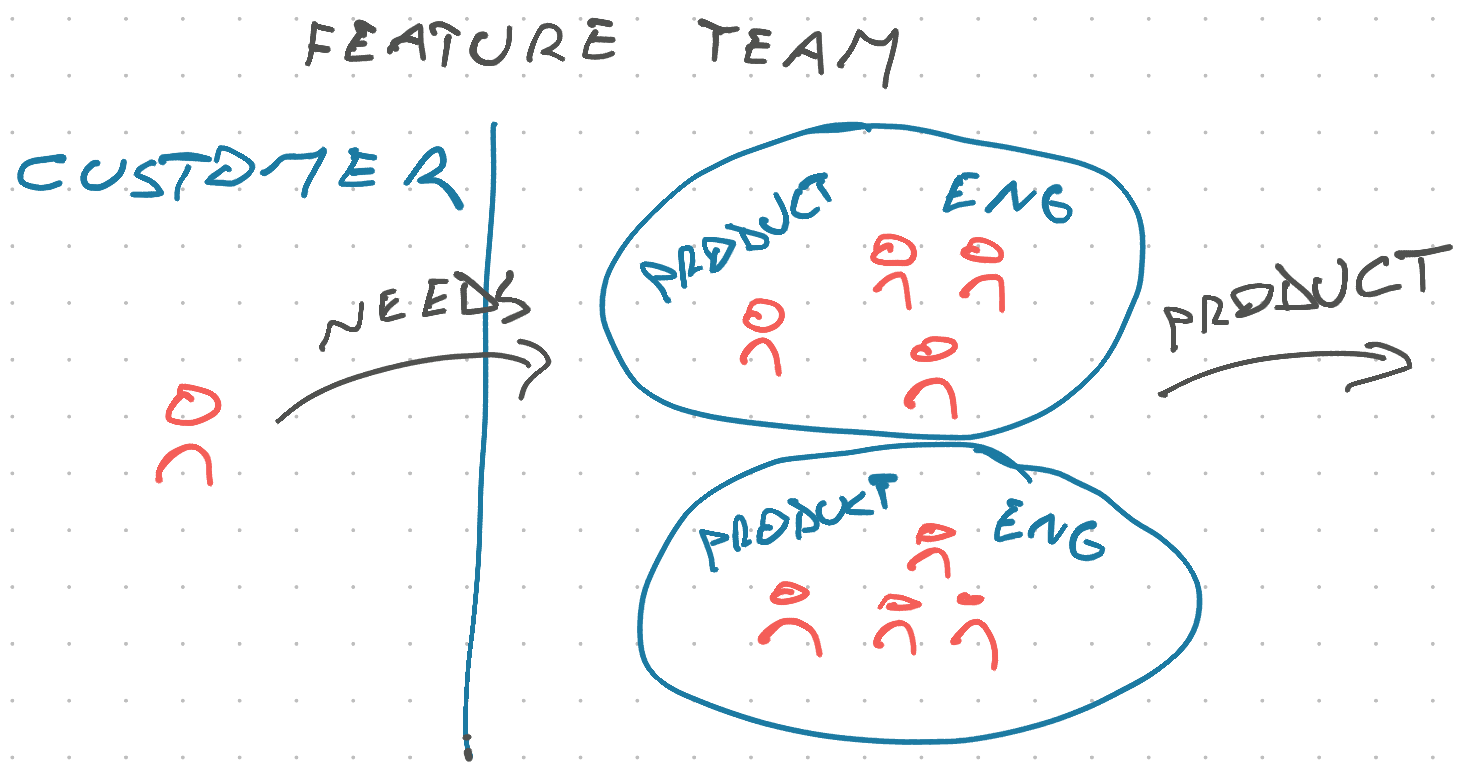 FEATURE TEAM
CUSTOMER
NEEDS
PRODUCT
ENG
PRODUCT
PRODUCT
ENG